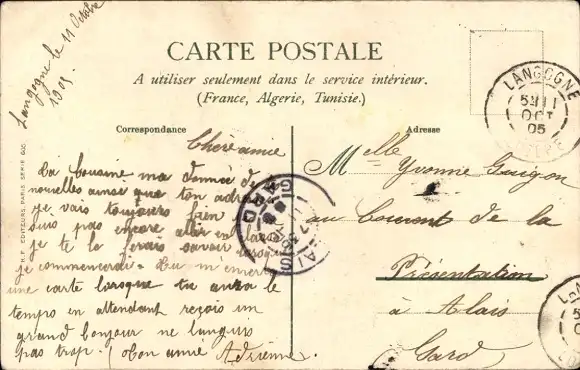 Langogne le 11 Octobre
1905
CARTE POSTALE
A utiliser seulement dans le service intérieur.
(France, Algerie, Tunisie.)
Correspondance
Adresse
Chère amie
Ta Cousine ma donnée de
nouvelles ainsi que ton adr
je vais toujours bien
suis pas encore aller en
je te le ferais savoir lorsque
je commencerai. Tu m'
une carte lorsque tu aura le
tempo en attendant reçois un
grand bonjour ne languis
pas trop. Ton amie Adrienne.
Melle Yvonne Guigon
au Couvent de la
Présentation
à Alais
Gard
LANGOGNE
11
OCT
05
LOZERE
GARD
EDITEURS, PARIS SERIE